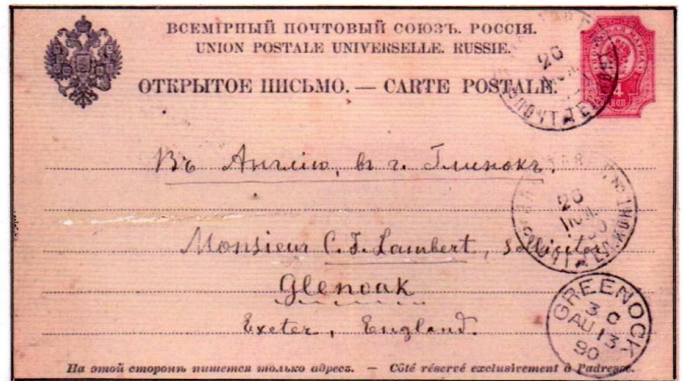 ВСЕМІРНЫЙ ПОЧТОВЫЙ СОЮЗЪ. РОССІЯ.
UNION POSTALE UNIVERSELLE. RUSSIE.
ОТКРЫТОЕ ПИСЬМО. — CARTE POSTALE.
4
КОП
26
ПОЧТ. ТЕЛ
Въ Англію, въ г. Глинокъ.
26
ІЮЛ.
Monsieur C. F. Lambert, solicitor
Glenoak
Exeter, England.
GREENOCK
3 C
AU 13
90
На этой сторонѣ пишется только адресъ. — Côté réservé exclusivement à l'adresse.